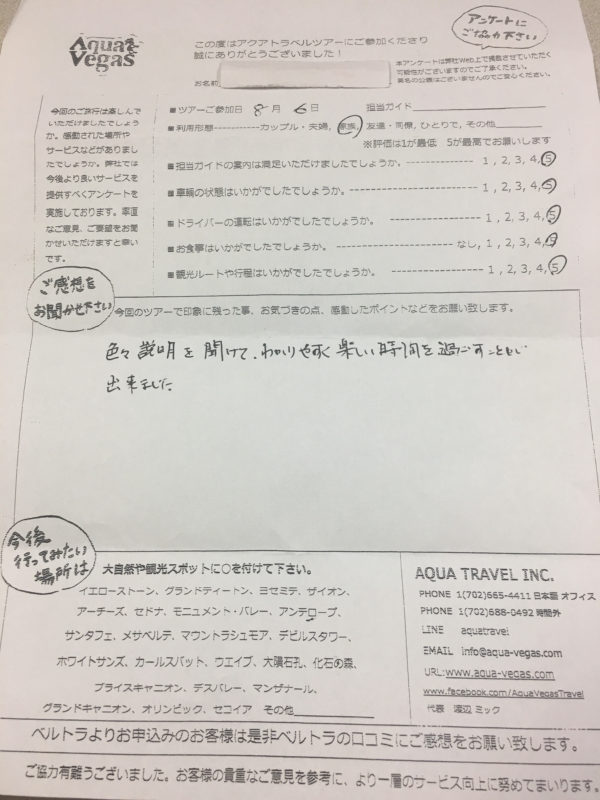 Aqua
Vegas
この度はアクアトラベルツアーにご参加くださり
誠にありがとうございました！
アンケートに
ご協力下さい
本アンケートは弊社Web上で掲載させていただく
可能性がございますのでご了承ください。
実名の公表はございませんのでご安心ください。
お名前
今回のご旅行は楽しんで
いただけましたでしょう
か。感動された場所や
サービスなどがありまし
たでしょうか。弊社では
今後より良いサービスを
提供すべくアンケートを
実施しております。率直
なご意見、ご要望をお聞
かせいただけますと幸い
です。
■ツアーご参加日 8月 6日 担当ガイド
■利用形態-----------カップル・夫婦, 家族, 友達・同僚, ひとりで, その他
※評価は1が最低 5が最高でお願いします
■担当ガイドの案内は満足いただけましたでしょうか。--------------- 1, 2, 3, 4, 5
■車輌の状態はいかがでしたでしょうか。 --------------------- 1, 2, 3, 4, 5
■ドライバーの運転はいかがでしたでしょうか。 ------------------- 1, 2, 3, 4, 5
■お食事はいかがでしたでしょうか。 ------------------------ なし, 1, 2, 3, 4, 5
■観光ルートや行程はいかがでしたでしょうか。 ------------------- 1, 2, 3, 4, 5
ご感想を
お聞かせ下さい
今回のツアーで印象に残った事、お気づきの点、感動したポイントなどをお願い致します。
色々説明を聞けて、わかりやすく楽しい時間を過ごすことが
出来ました
今後
行ってみたい
場所は
大自然や観光スポットに○を付けて下さい。
イエローストーン、グランドティートン、ヨセミテ、ザイオン、
アーチーズ、セドナ、モニュメント・バレー、アンテロープ、
サンタフェ、メサベルデ、マウントラシュモア、デビルスタワー、
ホワイトサンズ、カールスバット、ウエイブ、大隕石孔、化石の森、
ブライスキャニオン、デスバレー、マンザナール、
グランドキャニオン、オリンピック、セコイア その他
AQUA TRAVEL INC.
PHONE 1(702)665-4411 日本語 オフィス
PHONE 1(702)688-0492 時間外
LINE aquatravel
EMAIL info@aqua-vegas.com
URL:www.aqua-vegas.com
www.facebook.com/AquaVegasTravel
代表 渡辺 ミック
ベルトラよりお申込みのお客様は是非ベルトラの口コミにご感想をお願い致します。
ご協力有難うございました。お客様の貴重なご意見を参考に、より一層のサービス向上に努めてまいります。